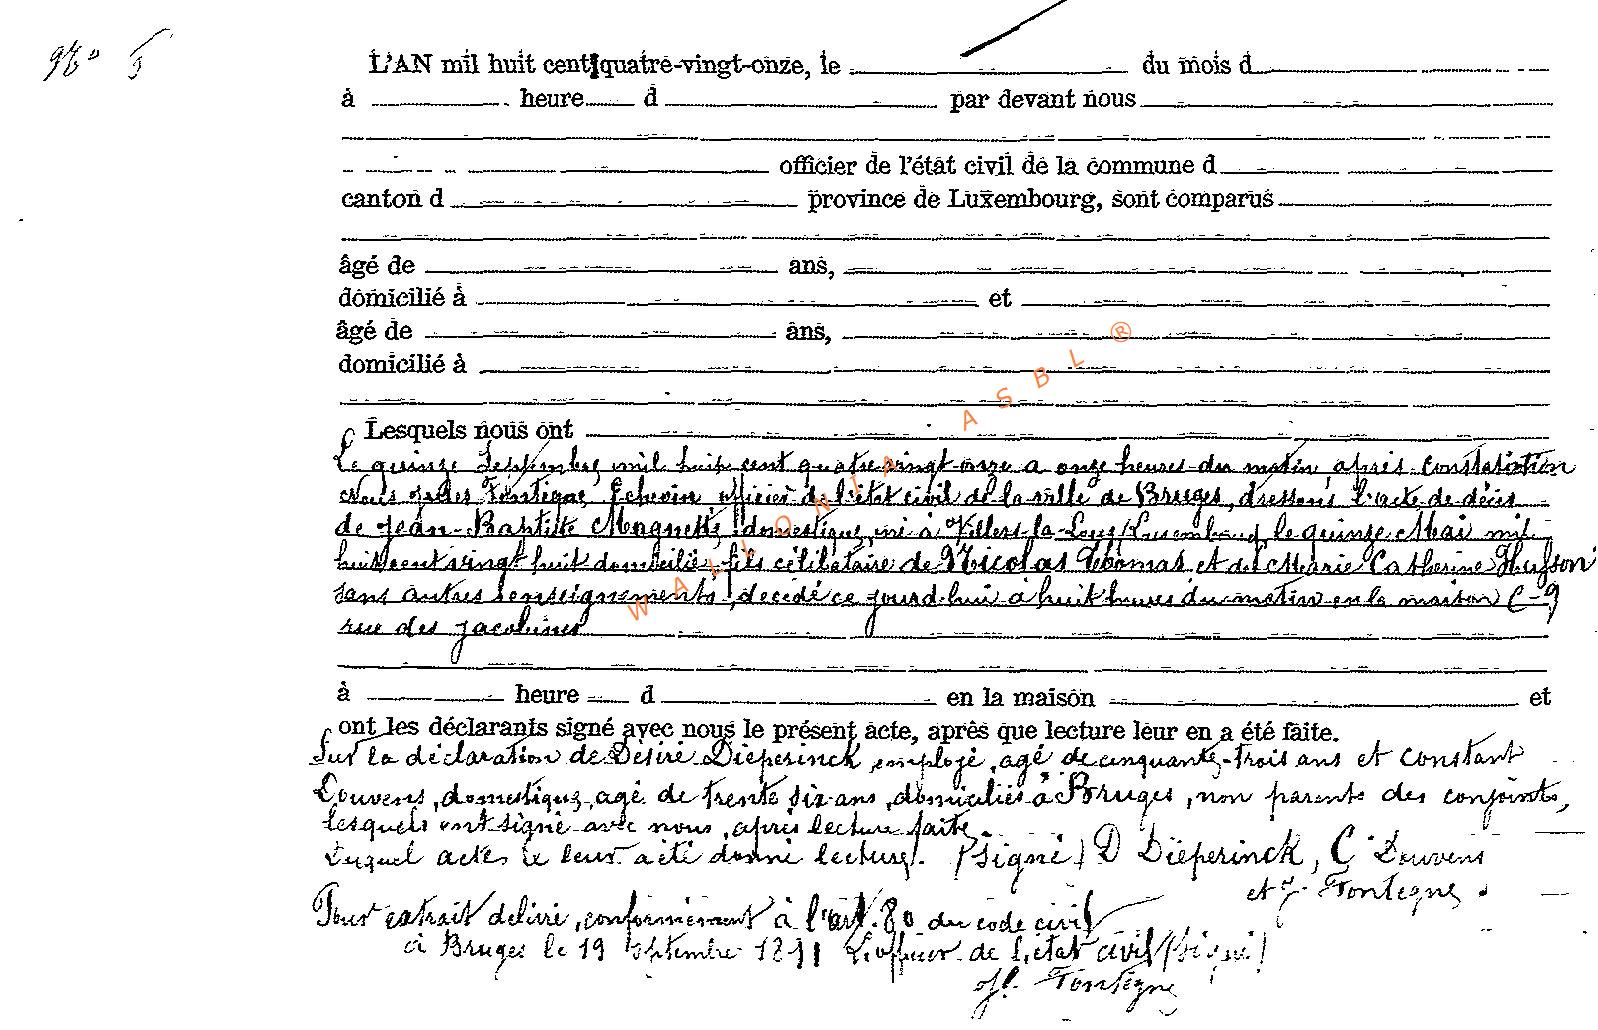 No 5
L'AN mil huit cent quatre-vingt-onze, le du mois d
à heure d par devant nous
officier de l'état civil de la commune d
canton d province de Luxembourg, sont comparus
âgé de ans,
domicilié à et
âgé de ans,
domicilié à
Lesquels nous ont
Le quinze Septembre mil huit cent quatre vingt onze a onze heures du matin, après constatation
Nous Fontegne, Echevin, officier de l'état civil de la ville de Bruges, dressons l'acte de décès
de Jean-Baptiste Magnette, domestique, né à Villers-la-Loue (Luxembourg) le quinze Mai mil
huit cent vingt huit domicilié fils célibataire de Nicolas Thomas et de Marie Catherine Husson
sans autres renseignements, décédé ce jourd'hui à huit heures du matin en la maison C-9
rue des Jacobines
à heure d en la maison et
ont les déclarants signé avec nous le présent acte, après que lecture leur en a été faite.
Sur la déclaration de Désiré Dieperinck, employé, agé de cinquante-trois ans et Constant
Louvens, domestique, agé de trente six ans, domiciliés à Bruges, non parents des conjoints,
lesquels ont signé avec nous, après lecture faite
actes leur a été donné lecture. (Signé) D Dieperinck, C Douvens
et J. Fontegne.
Pour extrait délivré, conformément à l'art. 80 du code civil
à Bruges le 19 Septembre 1891 L'officier de l'état civil (Signé)
Fontegne
WALLONIA ASBL ®